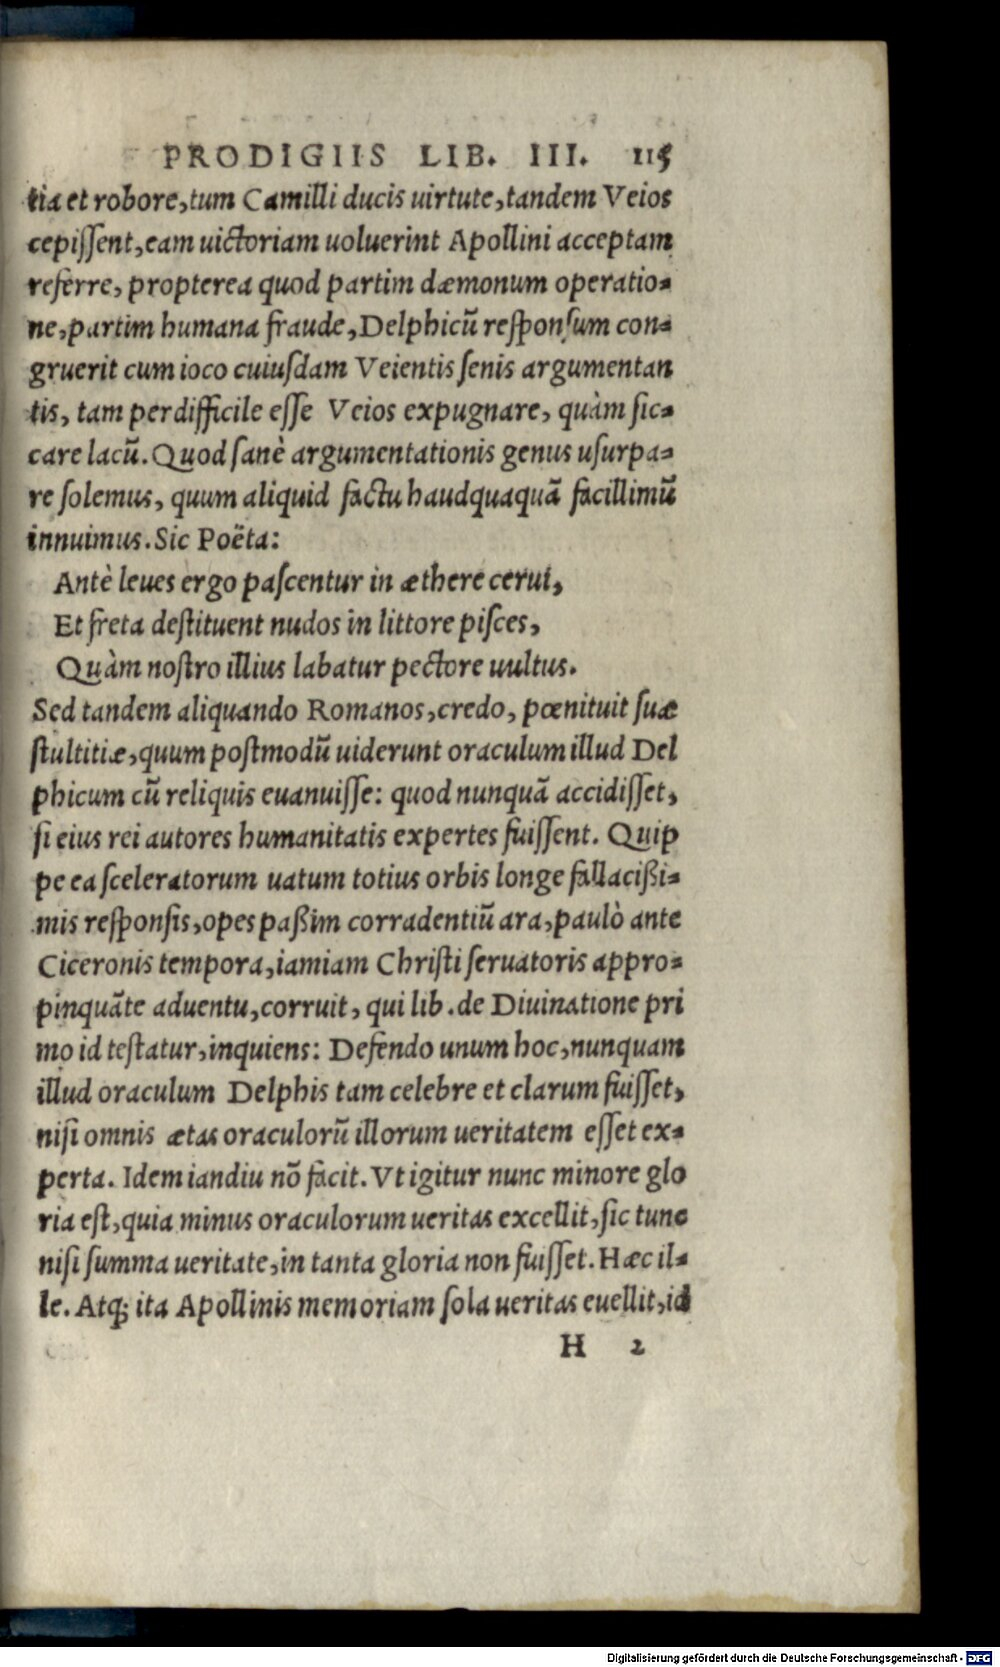 PRODIGIIS LIB. III. 115
tia et robore, tum Camilli ducis uirtute, tandem Veios
cepiſſent, eam uictoriam uoluerint Apollini acceptam
referre, propterea quod partim dæmonum operatio-
ne, partim humana fraude, Delphicũ reſponſum con-
gruerit cum ioco cuiuſdam Veientis ſenis argumentan
tis, tam perdifficile eſſe Veios expugnare, quàm ſic-
care lacũ. Quod ſanè argumentationis genus uſurpa-
re ſolemus, quum aliquid factu haudquaquã facillimũ
innuimus. Sic Poëta:
Antè leues ergo paſcentur in æthere cerui,
Et freta deſtituent nudos in littore piſces,
Quàm noſtro illius labatur pectore uultus.
Sed tandem aliquando Romanos, credo, pœnituit ſuæ
ſtultitiæ, quum poſtmodũ uiderunt oraculum illud Del
phicum cũ reliquis euanuiſſe: quod nunquã accidiſſet,
ſi eius rei autores humanitatis expertes fuiſſent. Quip
pe ea ſceleratorum uatum totius orbis longe fallacißi-
mis reſponſis, opes paßim corradentiũ ara, paulò ante
Ciceronis tempora, iamiam Chriſti ſeruatoris appro-
pinquãte aduentu, corruit, qui lib. de Diuinatione pri
mo id teſtatur, inquiens: Defendo unum hoc, nunquam
illud oraculum Delphis tam celebre et clarum fuiſſet,
niſi omnis ætas oraculorũ illorum ueritatem eſſet ex-
perta. Idem iandiu nõ facit. Vt igitur nunc minore glo
ria eſt, quia minus oraculorum ueritas excellit, ſic tunc
niſi ſumma ueritate, in tanta gloria non fuiſſet. Hæc il-
le. Atq; ita Apollinis memoriam ſola ueritas euellit, id
H 2
Digitalisierung gefördert durch die Deutsche Forschungsgemeinschaft - DFG